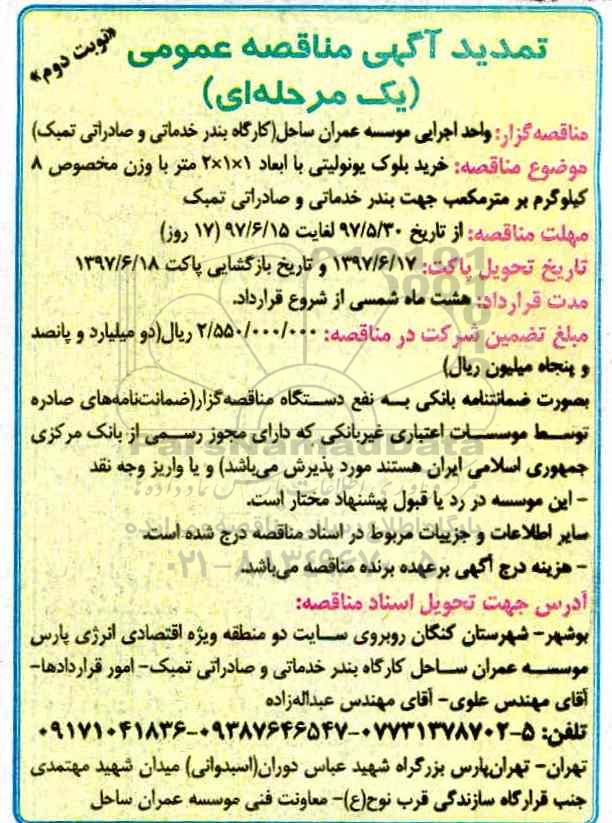 تمدید آگهی مناقصه عمومی
«نوبت دوم»
(یک مرحله‌ای)
مناقصه‌گزار: واحد اجرایی موسسه عمران ساحل(کارگاه بندر خدماتی و صادراتی تمبک)
موضوع مناقصه: خرید بلوک یونولیتی با ابعاد ۱×۱×۲ متر با وزن مخصوص ۸
کیلوگرم بر مترمکعب جهت بندر خدماتی و صادراتی تمبک
مهلت مناقصه: از تاریخ ۹۷/۵/۳۰ لغایت ۹۷/۶/۱۵ (۱۷ روز)
تاریخ تحویل پاکت: ۱۳۹۷/۶/۱۷ و تاریخ بازگشایی پاکت ۱۳۹۷/۶/۱۸
مدت قرارداد: هشت ماه شمسی از شروع قرارداد.
مبلغ تضمین شرکت در مناقصه: ۲/۵۵۰/۰۰۰/۰۰۰ ریال(دو میلیارد و پانصد
و پنجاه میلیون ریال)
بصورت ضمانتنامه بانکی به نفع دستگاه مناقصه‌گزار(ضمانت‌نامه‌های صادره
توسط موسسات اعتباری غیربانکی که دارای مجوز رسمی از بانک مرکزی
جمهوری اسلامی ایران هستند مورد پذیرش می‌باشد) و یا واریز وجه نقد
- این موسسه در رد یا قبول پیشنهاد مختار است.
سایر اطلاعات و جزییات مربوط در اسناد مناقصه درج شده است.
- هزینه درج آگهی برعهده برنده مناقصه می‌باشد.
آدرس جهت تحویل اسناد مناقصه:
بوشهر- شهرستان کنگان روبروی سایت دو منطقه ویژه اقتصادی انرژی پارس
موسسه عمران ساحل کارگاه بندر خدماتی و صادراتی تمبک- امور قراردادها-
آقای مهندس علوی- آقای مهندس عبداله‌زاده
تلفن: ۵-۰۷۷۳۱۳۷۸۷۰۲-۰۹۳۸۷۶۴۶۵۴۷-۰۹۱۷۱۰۴۱۸۳۶
تهران- تهران‌پارس بزرگراه شهید عباس دوران(اسبدوانی) میدان شهید مهتمدی
جنب قرارگاه سازندگی قرب نوح(ع)- معاونت فنی موسسه عمران ساحل
ParsNamadData
۰۲۱-۸۸۳۴۹۶۷۰-۵